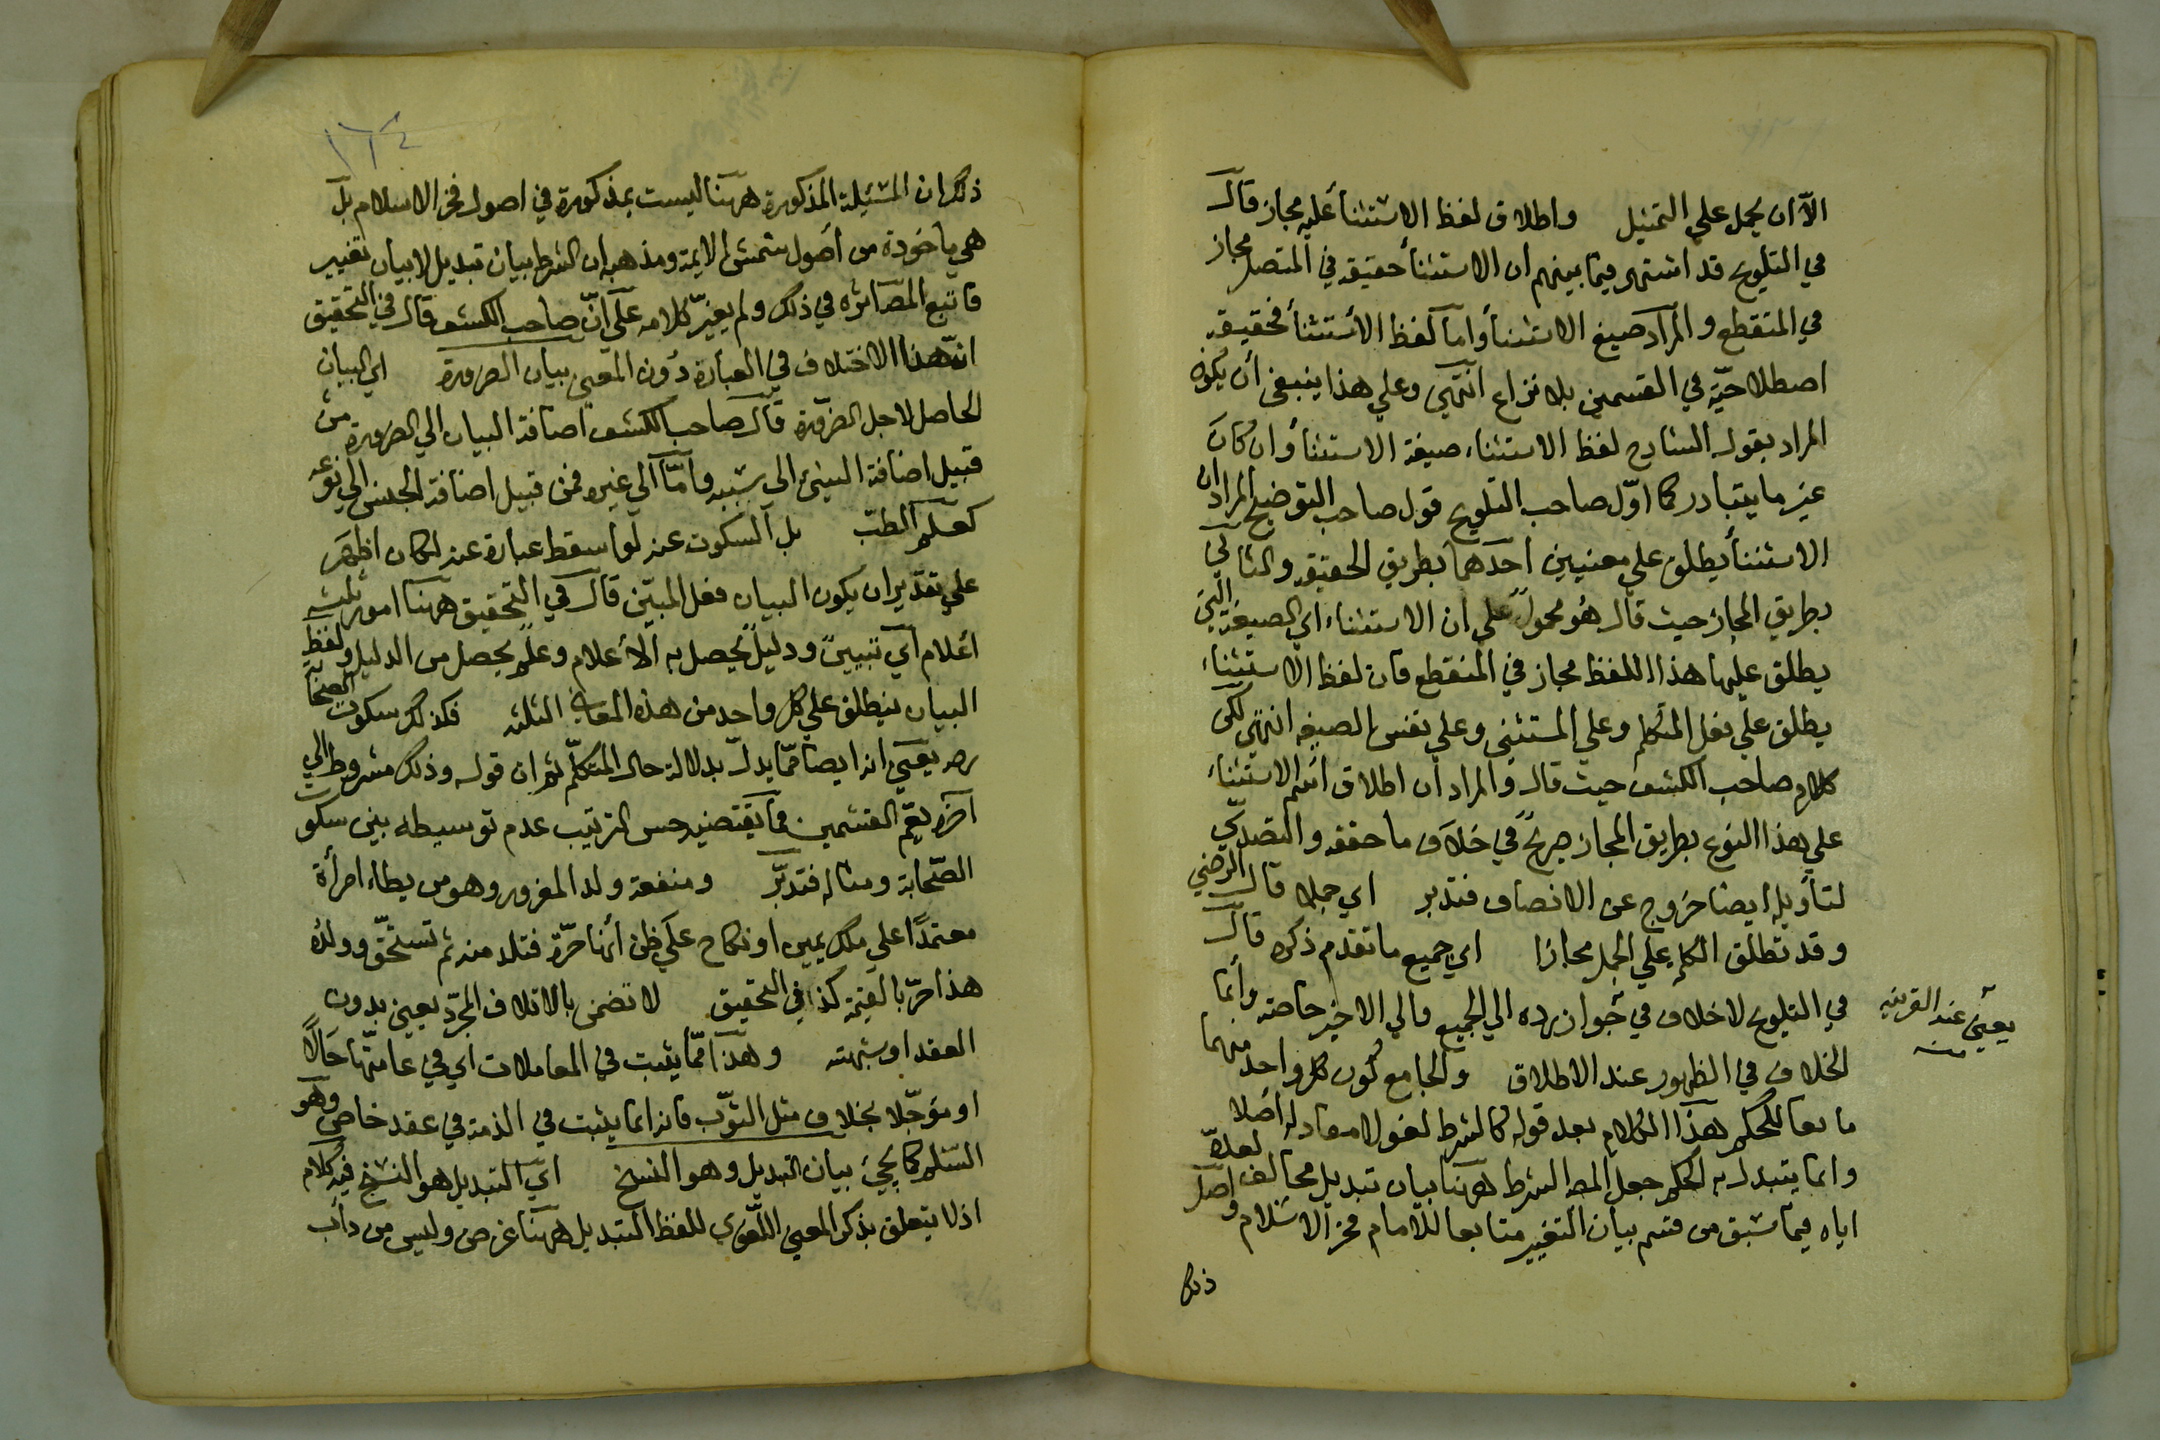 الّا ان يحمل علي التمثيل واطلاق لفظ الاستثنأ عليه مجاز قال
في التلويح قد اشتهر فيما بينهم ان الاستثنأ حقيقة في المتصل مجاز
في المنقطع والمراد صيغ الاستثنأ وأما لفظ الأستثنأ فحقيقة
اصطلاحيّة في القسمين بلا نزاع انتهي وعلي هذا ينبغي أن يكون
المراد بقوله الشارح لفظ الاستثناء صيغة الاستثنأ وان كان
غير ما يتبادر كما اوّل صاحب التلويح قول صاحب التوضيح المراد ان
الاستثنأ يطلق علي معنيين احدهما بطريق الحقيقه والثاني
بطريق المجاز حيث قال هو محمول علي ان الاستثناء اي الصيغة التي
يطلق عليها هذا اللفظ مجاز في المنقطع فان لفظ الاستثناء
يطلق علي فعل المتكلم وعلي المستثني وعلي نفس الصيغه انتهي لكن
كلام صاحب الكشف حيث قال والمراد ان اطلاق اسم الاستثناء
علي هذا النوع بطريق المجاز صريح في خلاف ما حققه والتصدّي
لتأويله ايضا خروج عن الانصاف فتدبر اي جملا قال الرضي
وقد تطلق الكلم علي الجمل مجازا اي جميع ما تقدم ذكره قال
في التلويح لا خلاف في جواز رده الي الجميع والي الاخير خاصة وأنما
يعني عند القرينه
منه
الخلاف في الظهور عند الاطلاق والجامع كون كل واحد منهما
مانعا للحكم هذا الكلام بعد قوله كالشرط لغو لا معاد له اصلا
وانما يتبدل به الحكم جعل المصـ الشرط ههنا بيان تبديل مخالف لعدّه
اياه فيما سبق من قسم بيان التغيير متابعا للامام فخر الاسلام واصل
ذلك
١٦٤
ذلك ان المسئيلة المذكورة ههنا ليست بمذكورة في اصول فخر الاسلام بل
هي ماخوذة من اصول شمس الايمة ومذهبه ان الشرط بيان تبديل لا بيان تغيير
فاتبع المصـ اثره في ذلك ولم يغيّر كلامه علي انّ صاحب الكشف قال في التحقيق
انّ هذا الاختلاف في العبارة دون المعني بيان الضرورة اي البيان
الحاصل لاجل الضرورة قال صاحب الكشف اضافة البيان الي الضرورة من
قبيل اضافة الشيئ الي سببه وامّا الي غيره فمن قبيل اضافة الجنس الي نوعه
كعلم الطب بل السكوت عنه لو اسقط عبارة عنه لكان اظهر
علي تقدير ان يكون البيان فعل المبيّن قال في التحقيق ههنا امور ثلثه
اعلام اي تبيين ودليل يحصل به الأعلام وعلم يحصل من الدليل ولفظ
البيان ينطلق علي كل واحد من هذه المعاني الثلثه فكذلك سكوت الصحا
به يعني انه ايضا ممّا يدل بدلالة حال المتكلّم ثم ان قوله وذلك مشروط الي
آخره يعمّ القسمين فما يقتضيه حسن الترتيب عدم توسيطه بين سكوت
الصّحابة ومثاله فتدبّر ومنفعة ولد المغرور وهو من يطاء امرأة
معتمدًا علي ملك يمين او نكاح علي ظن أنها حرّة فتلد منه ثم تستحقّ وولده
هذا حرّ بالقيمة كذا في التحقيق لا تضمن بالاتلاف المجرّد يعني بدون
العقد او شبهته وهذا ممّا يثبت في المعاملات اي في عامتّها حالًا
او مؤجّلا بخلاف مثل الثوّب فانه انما يثبت في الذمة في عقد خاص وهو
السّلم كما يجيئ بيان التبديل وهو النسخ اي التبديل هو النسخ فيه كلام
اذ لا يتعلق بذكر المعني اللّغوي للفظ التبديل ههنا غرض وليس من دأب